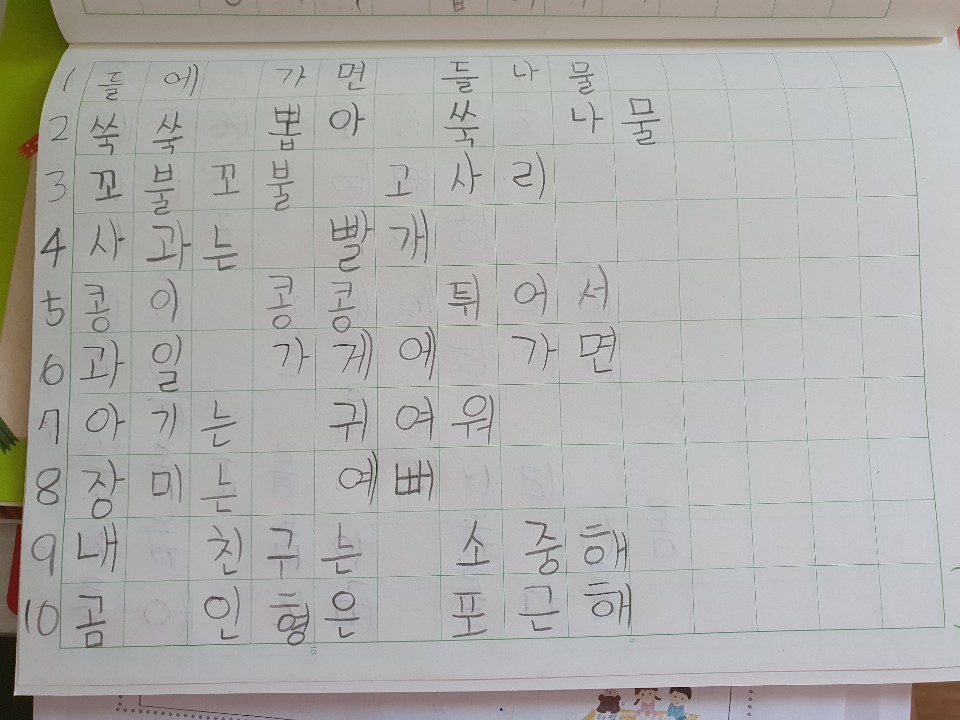 1 들에 가면 들나물
2 쑥쑥 뽑아 쑥 나물
3 꼬불꼬불 고사리
4 사과는 빨개
5 콩이 콩콩 튀어서
6 과일 가게에 가면
7 아기는 귀여워
8 장미는 예뻐
9 내 친구는 소중해
10 곰 인형은 포근해